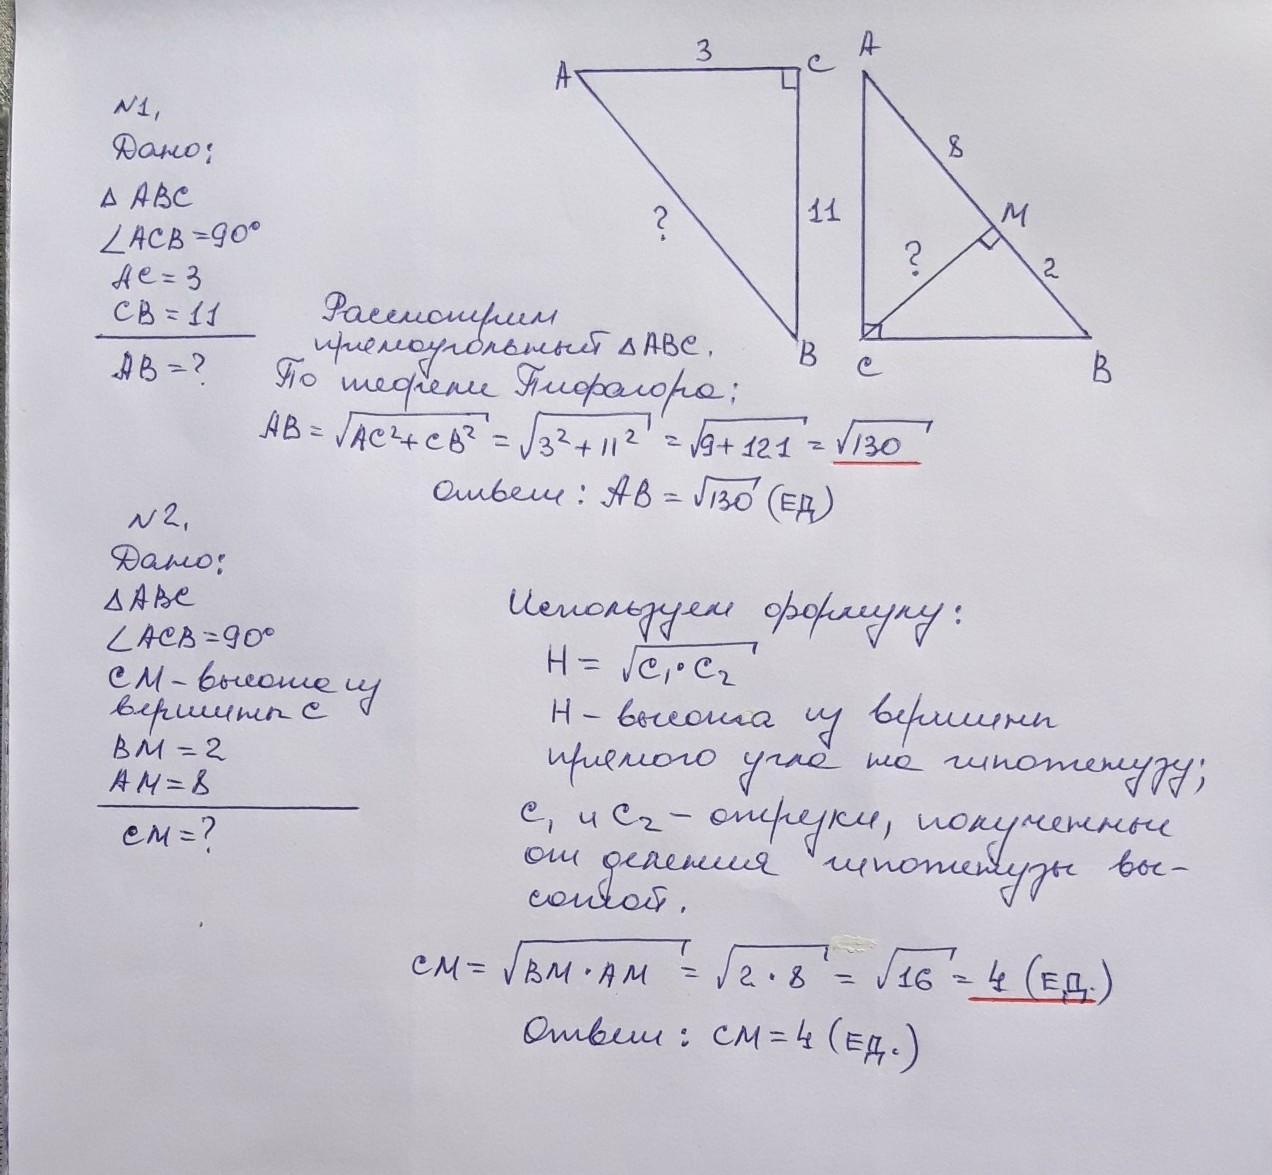 A
3
C
11
?
B
A
8
M
2
?
C
B
N1,
Дано:
Δ ABC
∠ACB = 90°
AC = 3
CB = 11
AB = ?
Рассмотрим
прямоугольный ΔABC.
По теореме Пифагора:
AB = √AC²+CB² = √3²+11² = √9+121 = √130
Ответ: AB = √130 (ЕД)
N2,
Дано:
ΔABC
∠ACB = 90°
CM – высота из
вершины C
BM = 2
AM = 8
CM = ?
Используем формулу:
H = √C₁·C₂
H – высота из вершины
прямого угла на гипотенузу;
C₁ и C₂ – отрезки, полученные
от деления гипотенузы вы-
сотой.
CM = √BM·AM = √2·8 = √16 = 4 (ЕД.)
Ответ: CM = 4 (ЕД.)